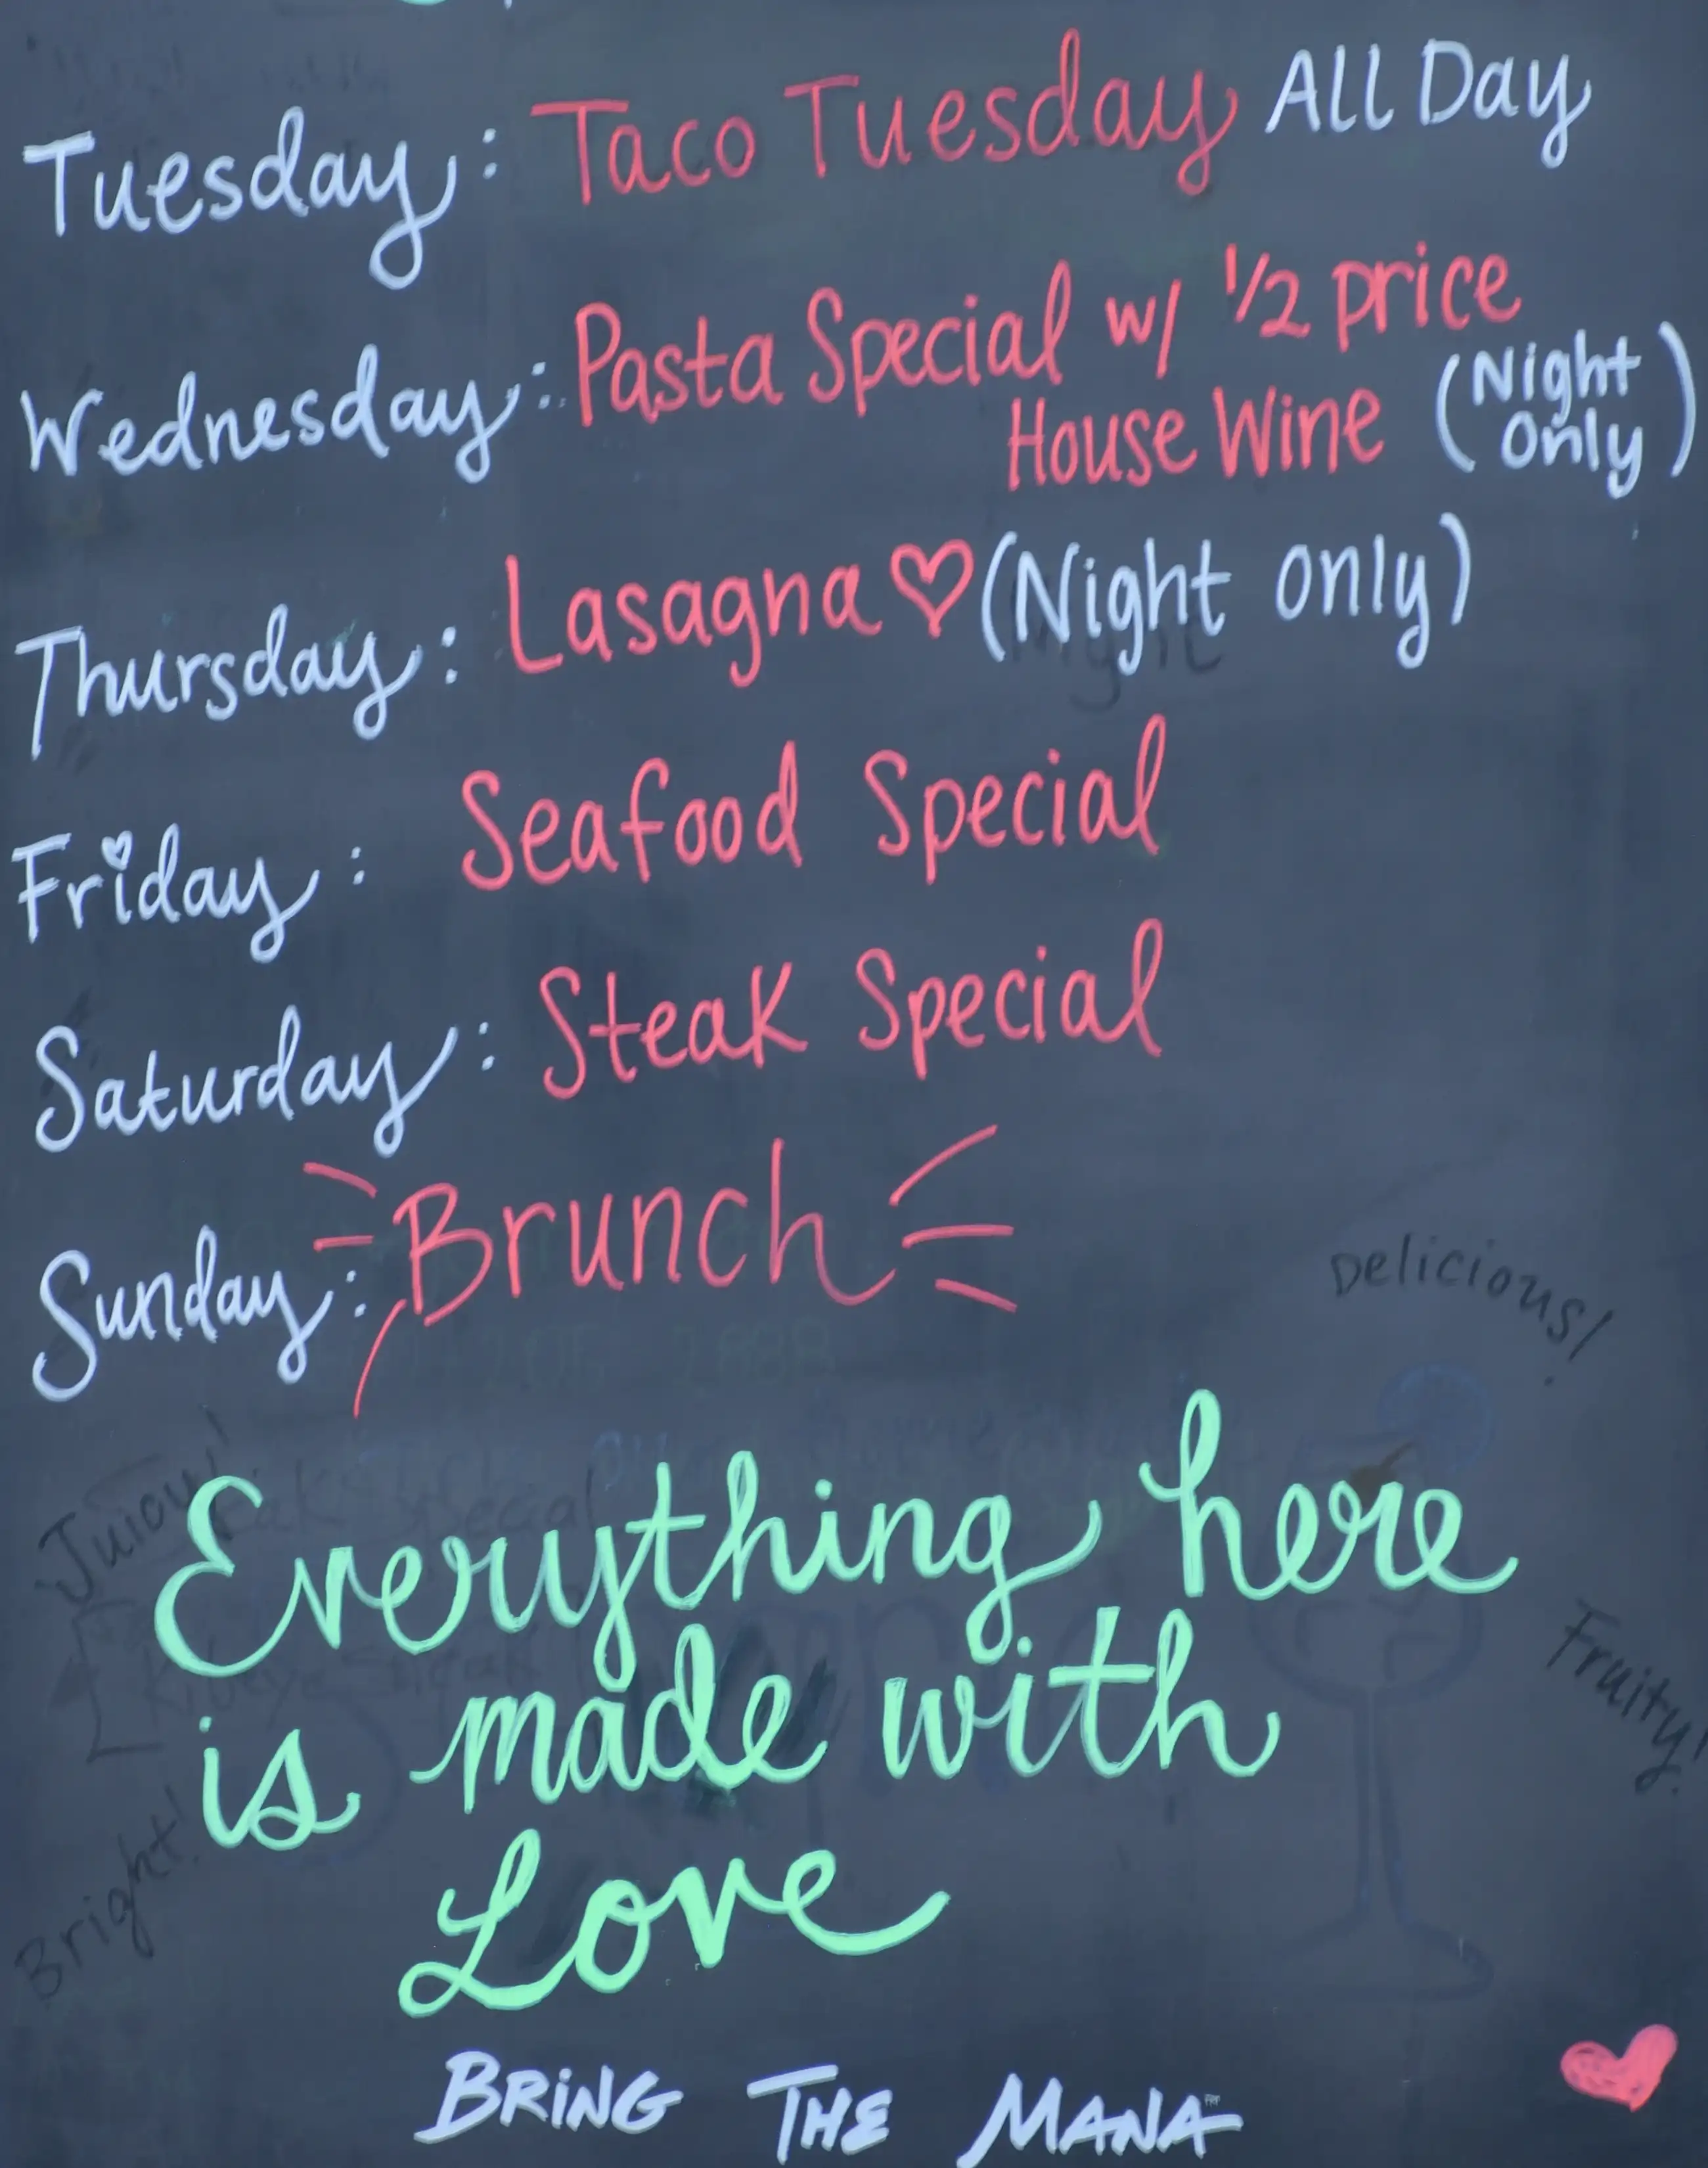 Tuesday: Taco Tuesday All Day
Wednesday: Pasta Special w/ 1/2 price
House Wine (Night Only)
Thursday: Lasagna ♡ (Night only)
Friday: Seafood Special
Saturday: Steak Special
Sunday: Brunch
Delicious!
Juicy!
Everything here
Fruity!
is made with
Bright!
Love
BRING THE MANA